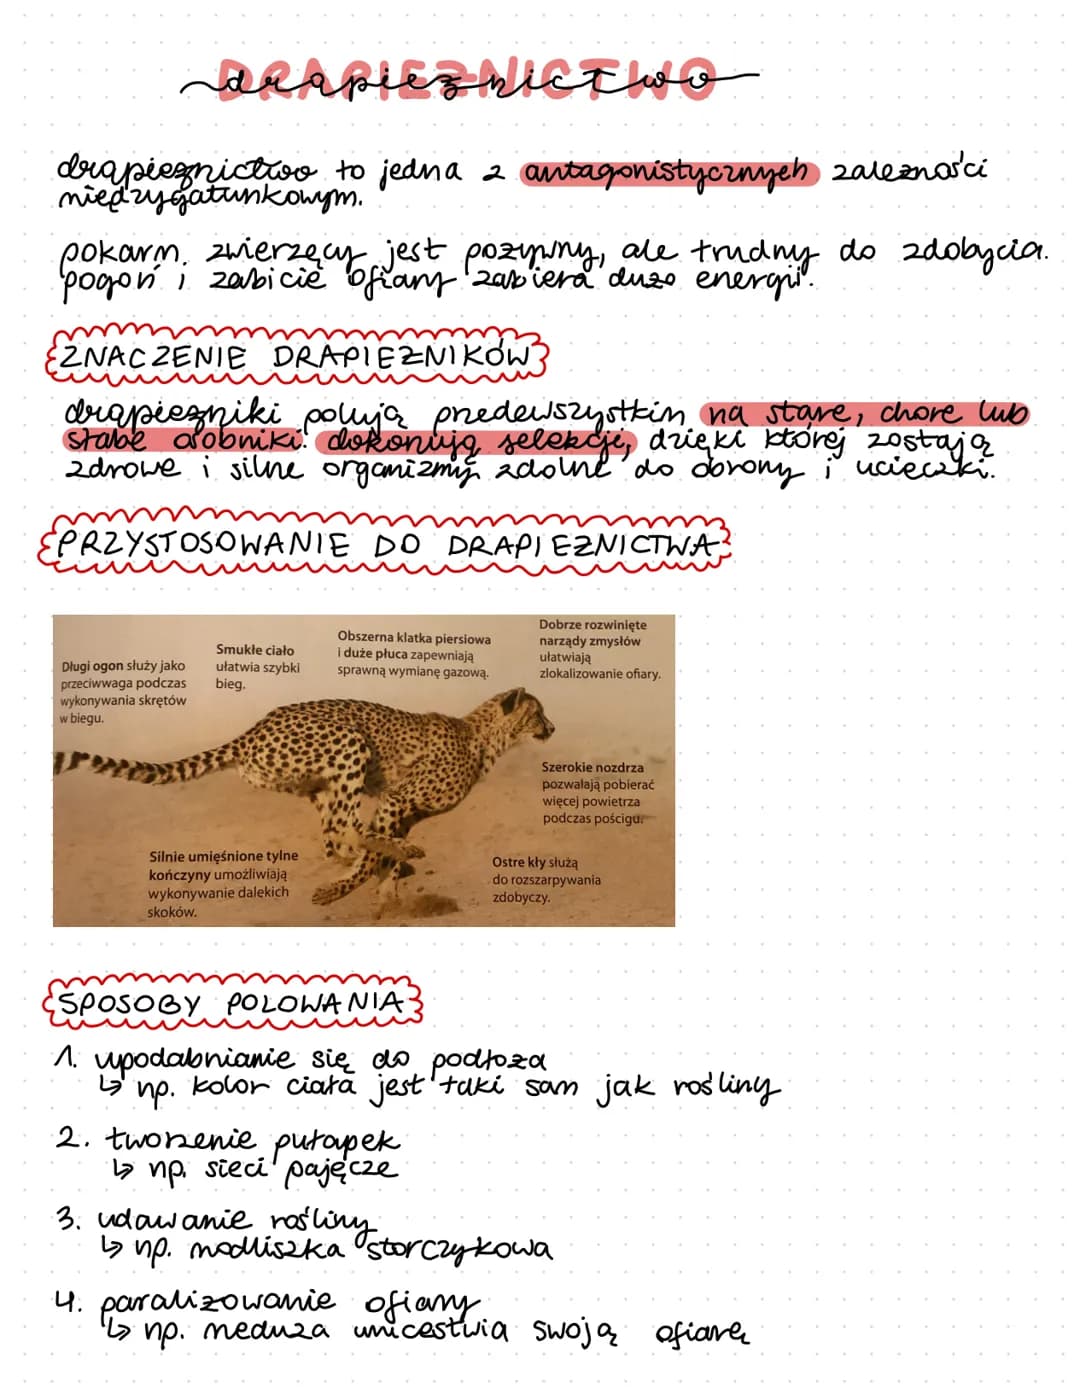 DRAPIEŻNICTWO
drapieżnictwo
drapieżnictwo to jedna z antagonistycznych zależności
międzygatunkowym.
pokarm zwierzęcy jest pożywny, ale trudny do zdobycia.
pogoń i zabicie ofiary zabiera dużo energii.
ZNACZENIE DRAPIEŻNIKÓW
drapieżniki polują przedewszystkim na stare, chore lub
słabe osobniki. dokonują selekcje, dzięki której zostają
zdrowe i silne organizmy zdolne do obrony i ucieczki.
PRZYSTOSOWANIE DO DRAPIEŻNICTWA
Długi ogon służy jako
przeciwwaga podczas
wykonywania skrętów
w biegu.
Smukłe ciało
ułatwia szybki
bieg.
Obszerna klatka piersiowa
i duże płuca zapewniają
sprawną wymianę gazową.
Dobrze rozwinięte
narządy zmysłów
ułatwiają
zlokalizowanie ofiary.
Szerokie nozdrza
pozwalają pobierać
więcej powietrza
podczas pościgu.
Silnie umięśnione tylne
kończyny umożliwiają
wykonywanie dalekich
skoków.
Ostre kły służą
do rozszarpywania
zdobyczy.
SPOSOBY POLOWANIA
1. upodabnianie się do podłoża
↳ np. kolor ciała jest taki sam jak rośliny
2. tworzenie pułapek
↳ np. sieci pajęcze
3. udawanie rośliny
↳ np. modliszka storczykowa
4. paraliżowanie ofiary
↳ np. meduza unicestwia swoją ofiarę